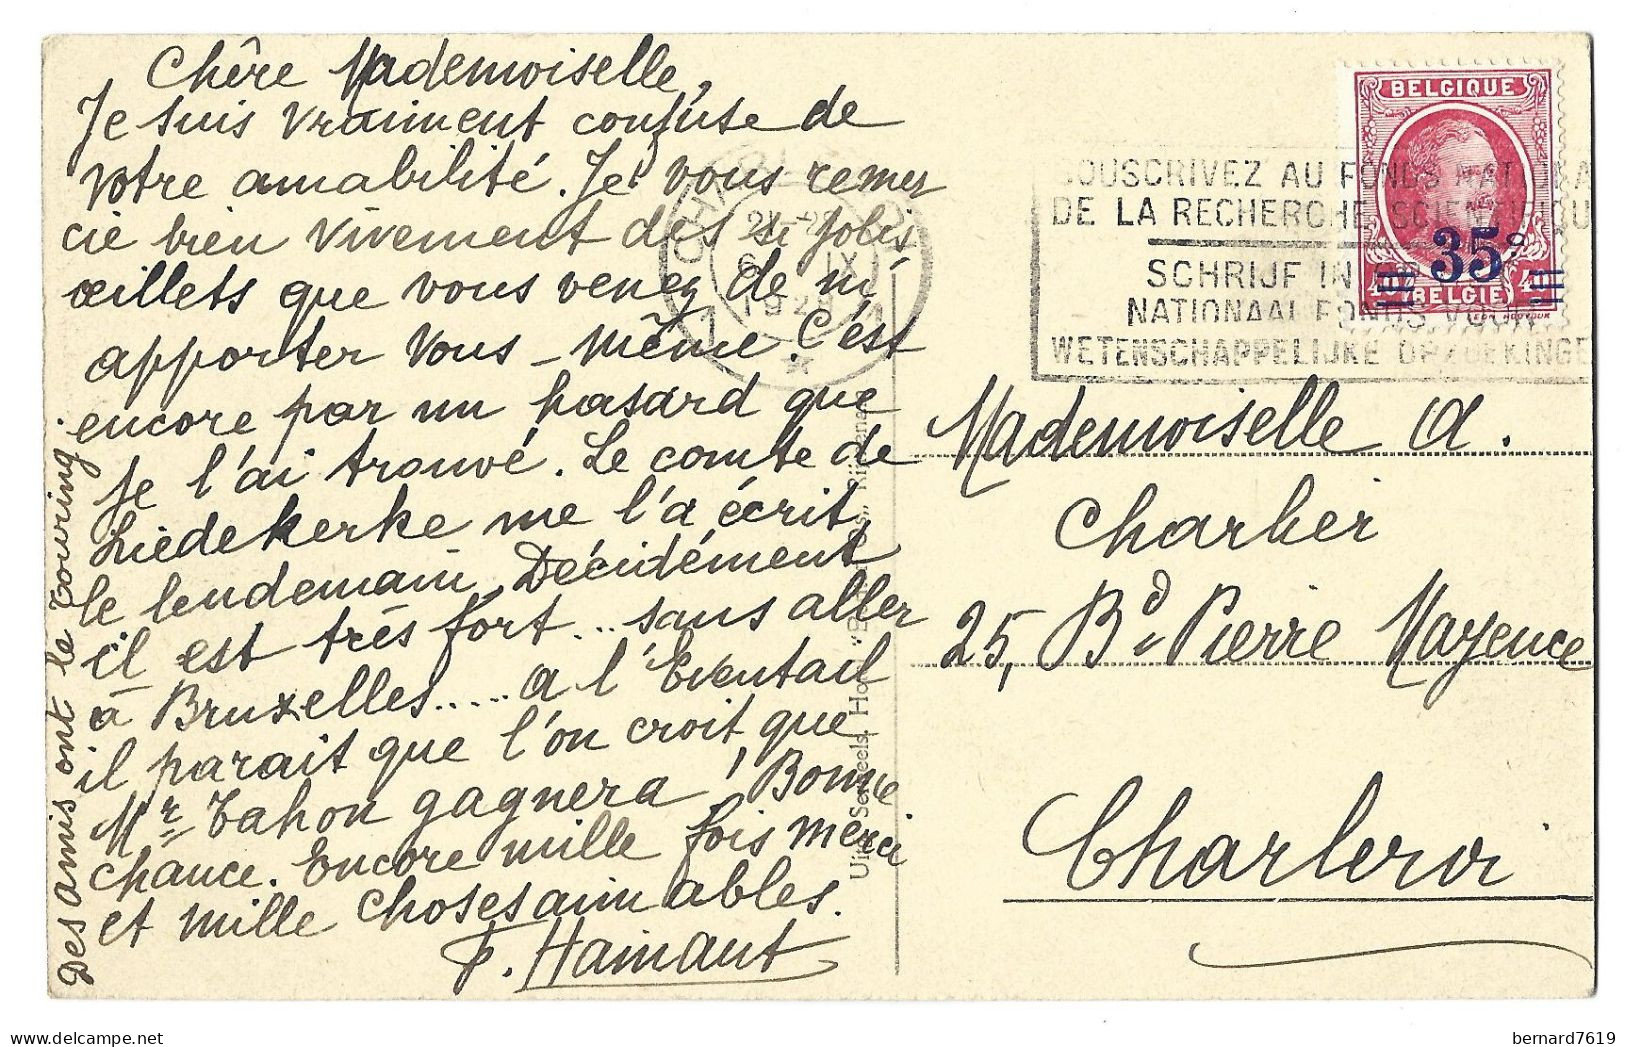 Chère Mademoiselle,
Je suis vraiment confuse de
votre amabilité. Je vous remer
cie bien vivement des si jolis
œillets que vous venez de m'
apporter vous-même. C'est
encore par un hasard que
je l'ai trouvé. Le comte de
Liedekerke me l'a écrit
le lendemain. Décidément
il est très fort... sans aller
à Bruxelles..... a l'Eventail
il parait que l'on croit que
Mr Tahon gagnera! Bonne
chance. Encore mille fois merci
et mille choses aimables.
F. Hainaut
Des amis ont le Touring.
21-2
6 IX
1928
SOUSCRIVEZ AU FONDS NATIONA
DE LA RECHERCHE SCIENTIFIQU
SCHRIJF IN
NATIONAAL FONDS VOOR
WETENSCHAPPELIJKE OPZOEKINGE
BELGIQUE
35c
BELGIE
Mademoiselle A.
Charlier
25, Bd Pierre Mayence
Charleroi
bernard7619